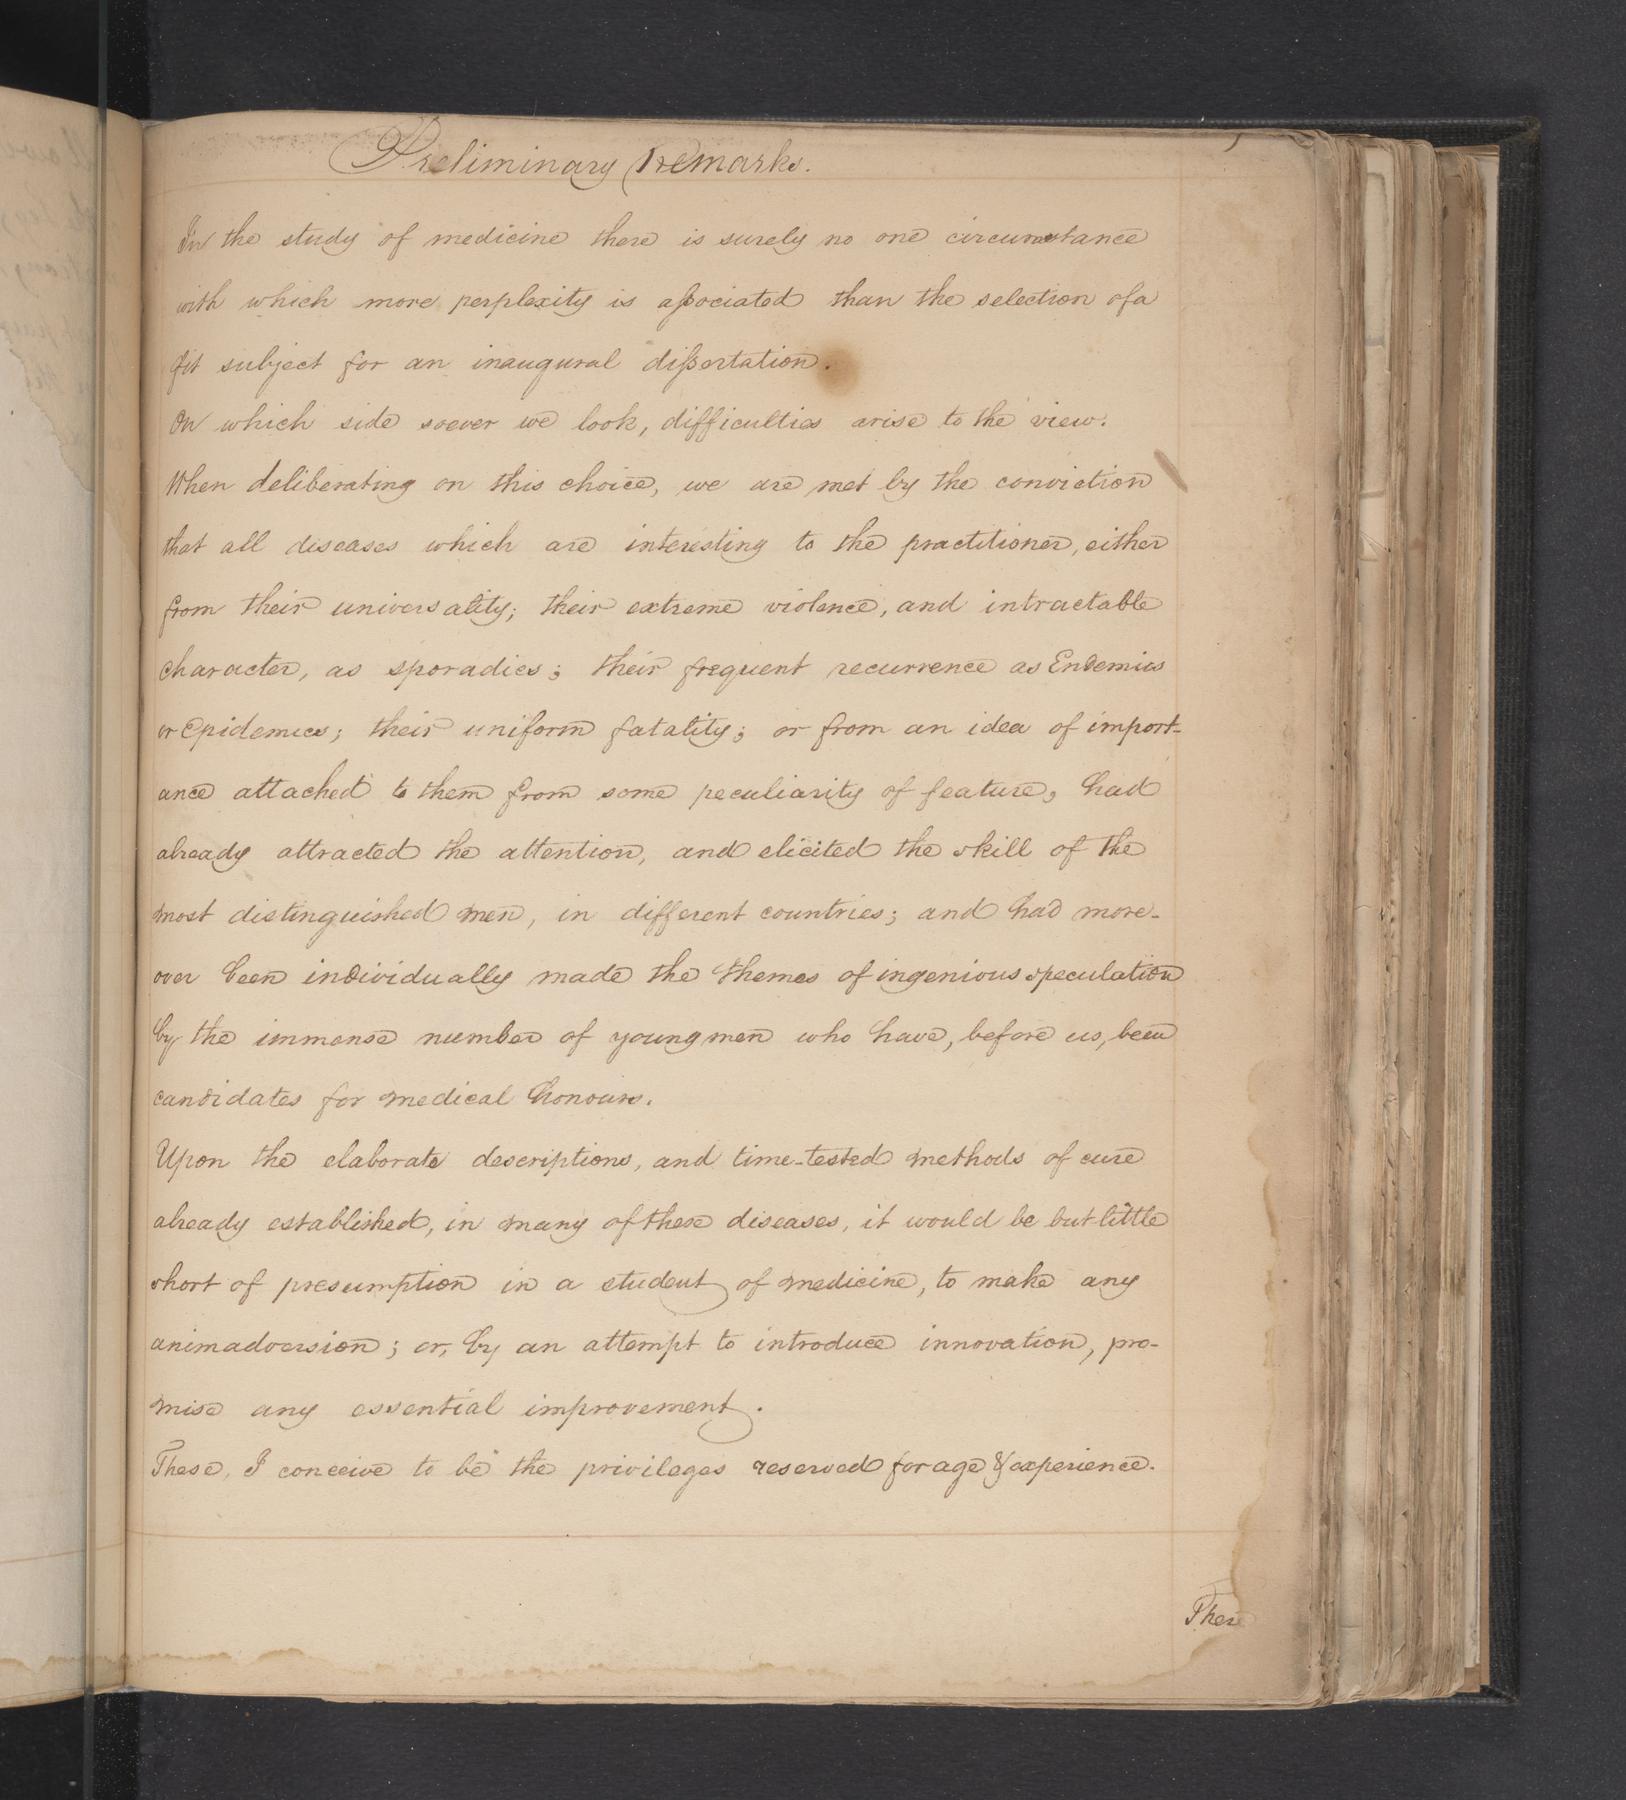 Preliminary Remarks.
In the study of medicine there is surely no one circumstance
with which more perplexity is associated than the selection of a
fit subject for an inaugural dissertation.
On which side soever we look, difficulties arise to the view.
When deliberating on this choice, we are met by the conviction
that all diseases which are interesting to the practitioner, either
from their universality; their extreme violence, and intractable
character, as sporadics; their frequent recurrence as Endemics
or Epidemics; their uniform fatality; or from an idea of import-
ance attached to them from some peculiarity of feature, had
already attracted the attention, and elicited the skill of the
most distinguished men, in different countries; and had more-
over been individually made the themes of ingenious speculation
by the immense number of young men who have, before us, been
candidates for medical honours.
Upon the elaborate descriptions, and time-tested methods of cure
already established, in many of these diseases, it would be but little
short of presumption in a student of medicine, to make any
animadversion; or, by an attempt to introduce innovation, pro-
mise any essential improvement.
These, I conceive to be the privileges reserved for age & experience.
There